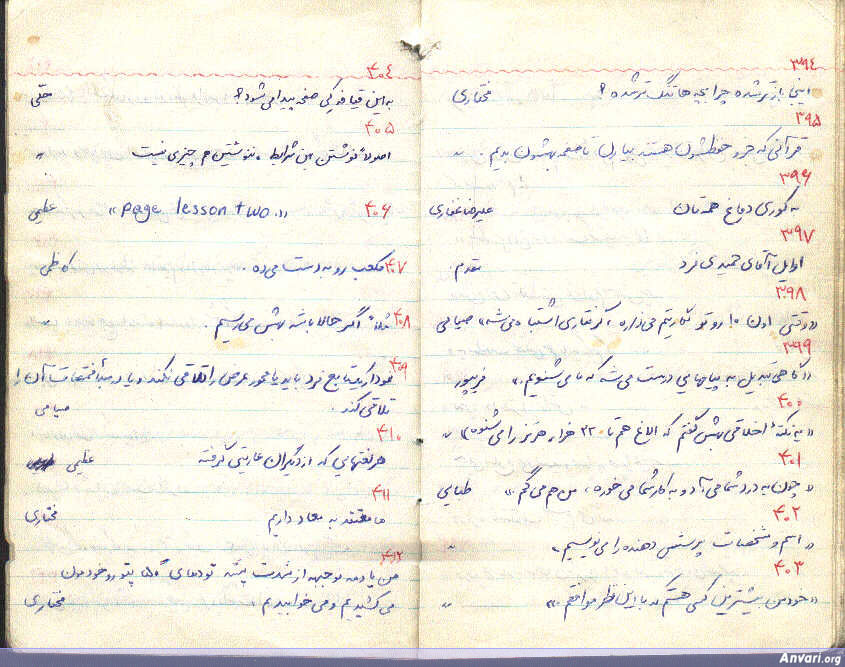 ۳۹۴
اینجا بازتر شده چرا بچه ها تنگ تر شده؟ مختاری
۳۹۵
قرآنی که جزو حفظشون هستند بیارن تا صفحه بهشون بدیم. ״
۳۹۶
به کوری دماغ همه‌تان علیرضا غفاری
۳۹۷
اوایل آقای حمیدی فرد تقدم
۳۹۸
«وقتی اون ۱۰ رو تو لگاریتم می‌ذاره، گرفتاری اشتباه می‌شه» صیامی
۳۹۹
«گاهی تبدیل به پیامهایی درست می‌شه که ما می‌شنویم.» فریپور
۴۰۰
«یه نکتهٔ اخلاقی بهش گفتم که الاغ هم تا ۳۲۰ هزار هرتز را می‌شنوه» ״
۴۰۱
«چون به درد شما می‌آد و به کار شما می‌خوره، من هم می‌گم.» طبایی
۴۰۲
«اسم و مشخصات پرسش دهنده را می‌نویسیم» ״
۴۰۳
«خود من بیشترین کسی هستم که با این نظر موافقم.» ״
۴۰۴
به این قیافه کی صفحه پیدا می‌شود؟ حقی
۴۰۵
اصولاً نوشتن این شرایط، ننوشتن هم چیزی نیست ״
۴۰۶ «page lesson two.» عظیمی
۴۰۷ مکعب رو به دست می‌ده. کاظمی
۴۰۸ مثلاً اگر حالا باشه بهش می‌رسیم. ״
۴۰۹
نمودار یک تابع فرد باید یا محور عرض را تلاقی نکند و یا در مبدأ مختصات آن را
تلاقی کند. صیامی
۴۱۰
هر نفتهایی که از دیگران عاریتی گرفته عظیمی
۴۱۱
ما معتقد به معاد داریم مختاری
۴۱۲
من یادمه تو جبهه از شدت پشه تو دمای ۵۰° پتو رو خودمون
می‌کشیدیم و می‌خوابیدیم مختاری
Anvari.org